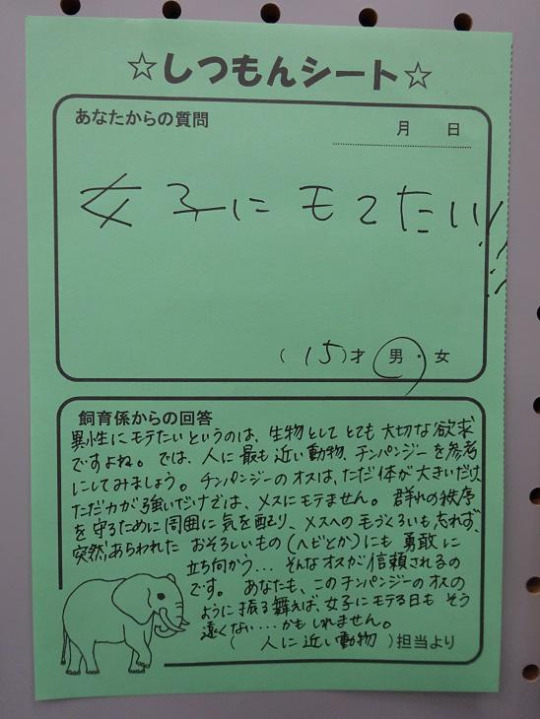 ☆しつもんシート☆
あなたからの質問
月 日
女子にモてたい!!!
(15)才 男・女
飼育係からの回答
異性にモテたいというのは、生物としてとても大切な欲求
ですよね。では、人に最も近い動物、チンパンジーを参考
にしてみましょう。チンパンジーのオスは、ただ体が大きいだけ、
ただ力が強いだけでは、メスにモテません。群れの秩序
を守るために周囲に気を配り、メスへの毛づくろいも忘れず、
突然あらわれたおそろしいもの(ヘビとか)にも勇敢に
立ち向かう…そんなオスが信頼されるの
です。あなたも、このチンパンジーのオスの
ように振る舞えば、女子にモテる日もそう
遠くない…かもしれません。
(人に近い動物)担当より